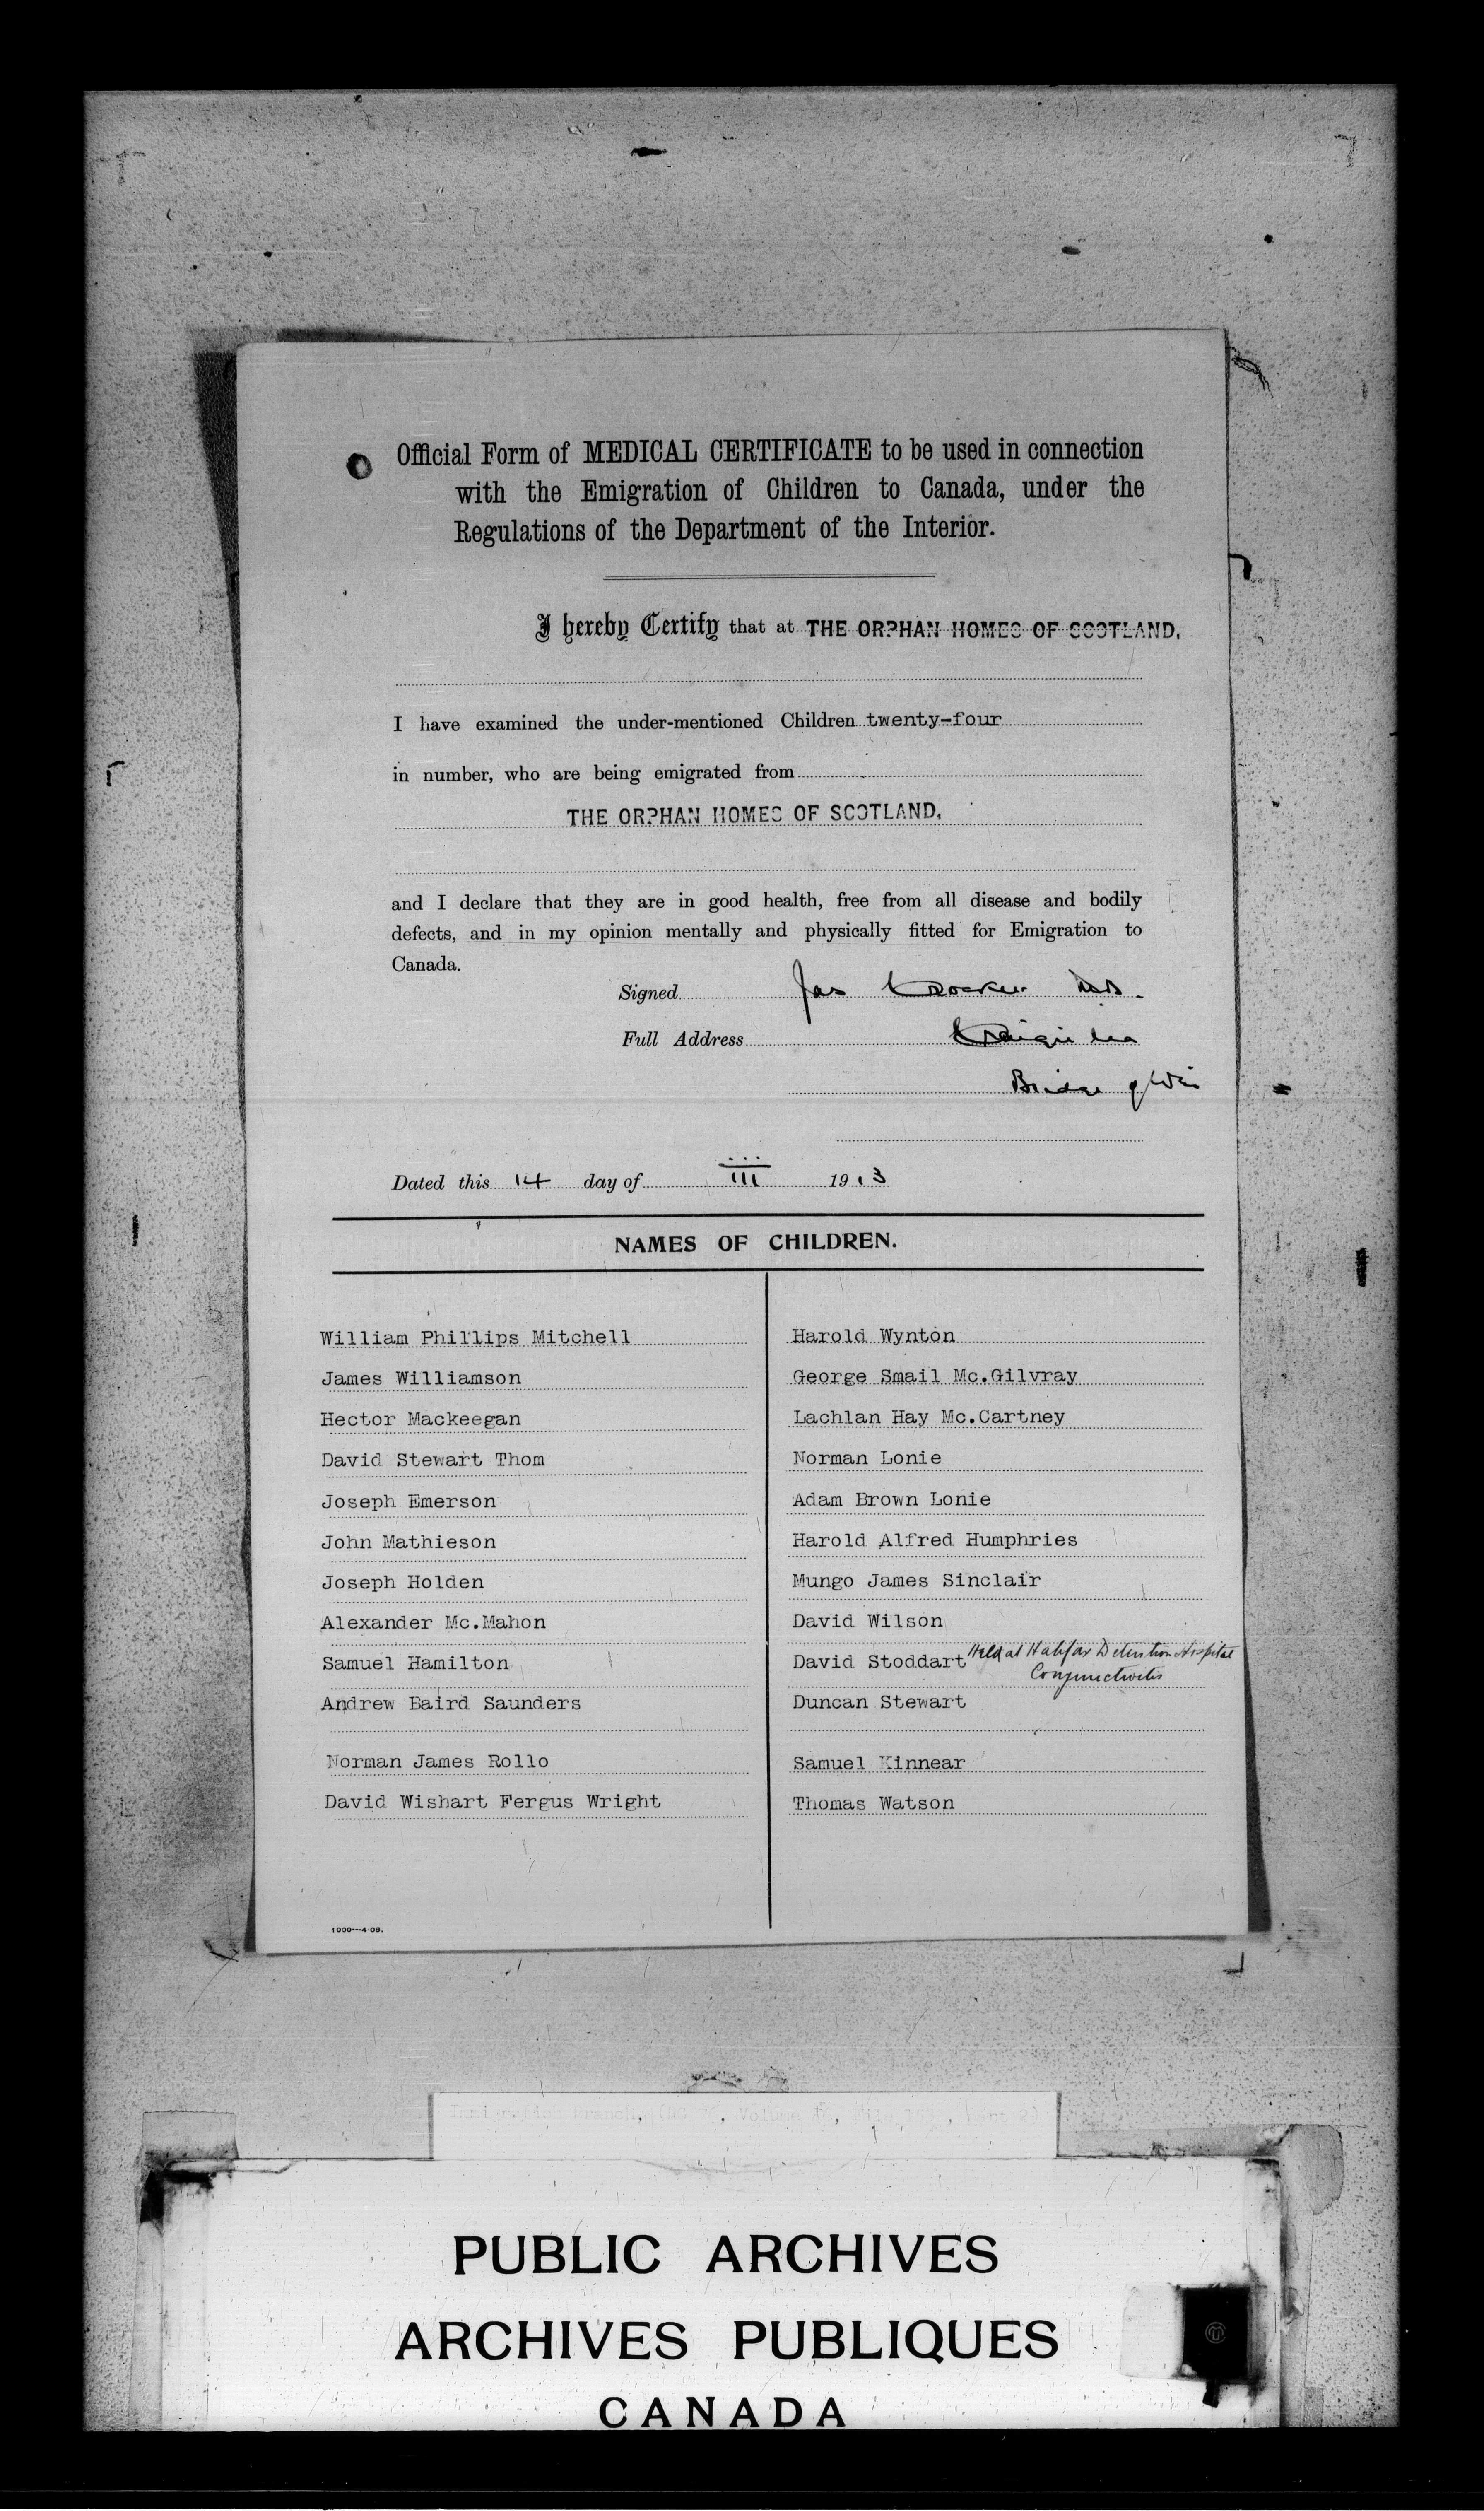 Official Form of MEDICAL CERTIFICATE to be used in connection
with the Emigration of Children to Canada, under the
Regulations of the Department of the Interior.
I hereby Certify that at THE ORPHAN HOMES OF SCOTLAND,
I have examined the under-mentioned Children twenty-four
in number, who are being emigrated from
THE ORPHAN HOMES OF SCOTLAND,
and I declare that they are in good health, free from all disease and bodily
defects, and in my opinion mentally and physically fitted for Emigration to
Canada.
Signed Jas
Full Address
Bridge of Weir
Dated this 14 day of III 1913
NAMES OF CHILDREN.
William Phillips Mitchell
James Williamson
Hector Mackeegan
David Stewart Thom
Joseph Emerson
John Mathieson
Joseph Holden
Alexander Mc.Mahon
Samuel Hamilton
Andrew Baird Saunders
Norman James Rollo
David Wishart Fergus Wright
Harold Wynton
George Smail Mc.Gilvray
Lachlan Hay Mc.Cartney
Norman Lonie
Adam Brown Lonie
Harold Alfred Humphries
Mungo James Sinclair
David Wilson
David Stoddart Held at Halifax Detention Hospital
Conjunctivitis
Duncan Stewart
Samuel Kinnear
Thomas Watson
1000---4-09.
Immigration Branch, Volume
PUBLIC ARCHIVES
ARCHIVES PUBLIQUES
CANADA